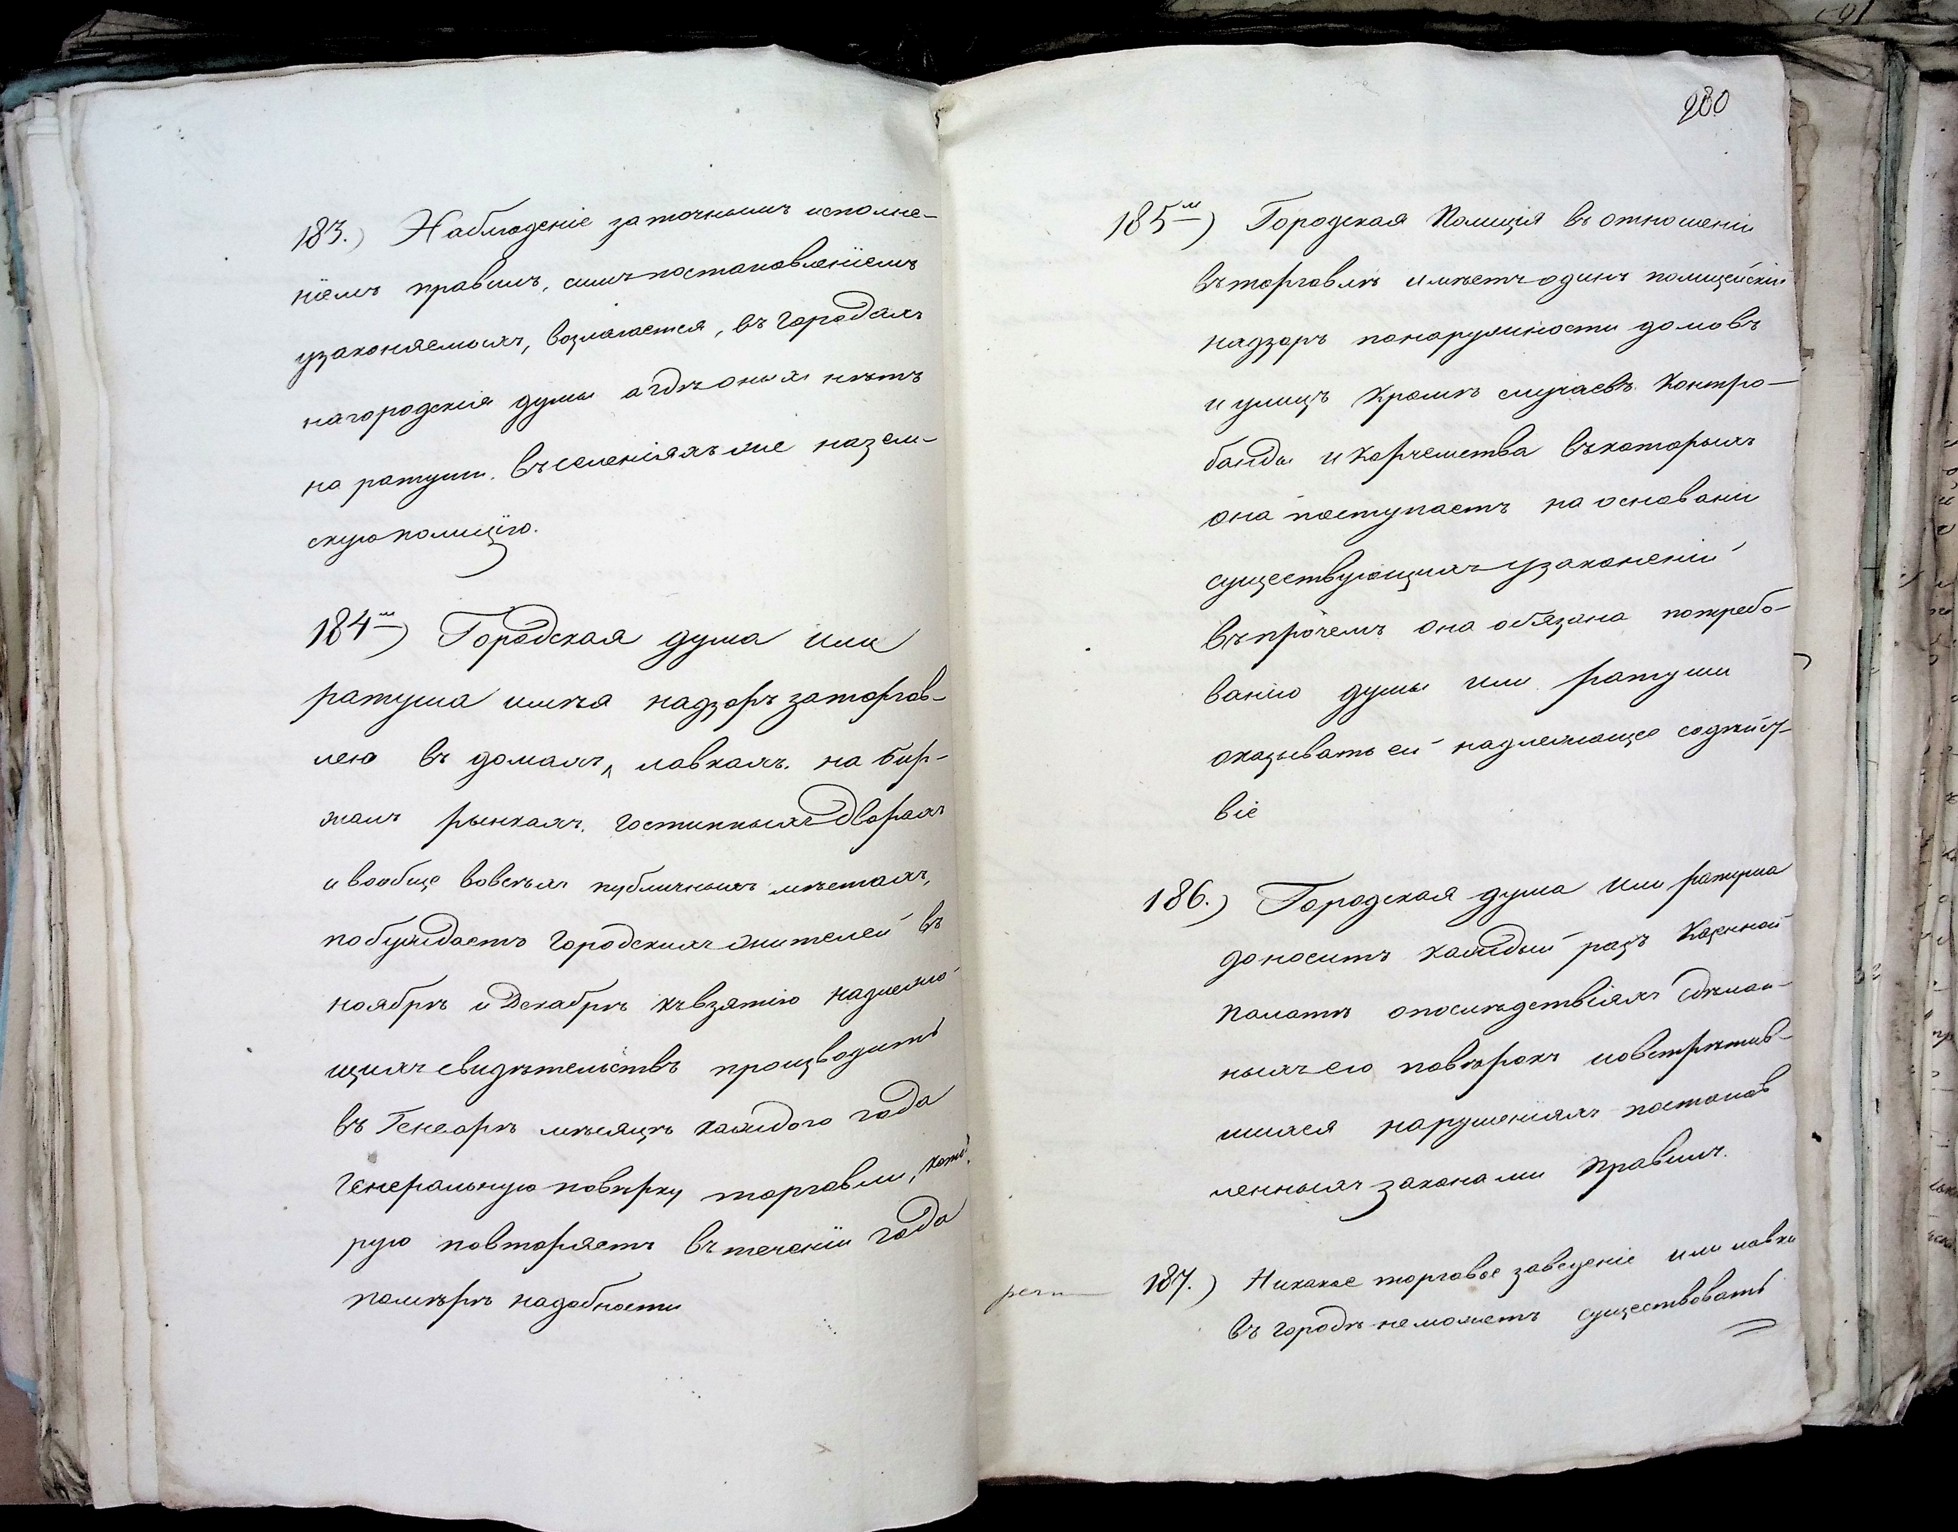 183.) Наблюденіе за точнымъ исполне-
ніемъ правилъ, симъ постановленіемъ
узаконяемыхъ, возлагается, въ городахъ
на городскія думы а гдѣ оныхъ нѣтъ
на ратуши. въ селеніяхъ же на зем-
скую полицію.
184м) Городская дума или
ратуша имѣя надзоръ за торгов-
лею въ домахъ, лавкахъ. на бир-
жахъ рынкахъ. гостинныхъ дворахъ
и вообще во всѣхъ публичныхъ мѣстахъ,
побуждаетъ городскихъ жителей въ
ноябрѣ и Декабрѣ къ взятію надлежа-
щихъ свидѣтельствъ производитъ
въ Генварѣ мѣсяцѣ каждого года
генеральную повѣрку торговли, кото-
рую повторяетъ въ теченіи года
по мѣрѣ надобности
280
185м) Городская Полиція въ отношеніи
въ торговлѣ имѣетъ одинъ полицейскій
надзоръ по наружности домовъ
и улицъ Кромѣ случаевъ Контро-
банды и Корчемства въ которыхъ
она поступаетъ на основаніи
существующихъ узаконеній
въ прочемъ она обязана по требо-
ванію думы или ратуши
оказывать ей надлежащее содѣйст-
віе
186.) Городская дума или ратуша
доноситъ каждый разъ Казенной
Палатѣ о послѣдствіяхъ сдѣлан-
ныхъ ею повѣрокъ и о встрѣтив-
шихся нарушеніяхъ постанов
ленныхъ законами правилъ.
187.) Никакое торговое заведеніе или лавка
въ городѣ не можетъ существовать